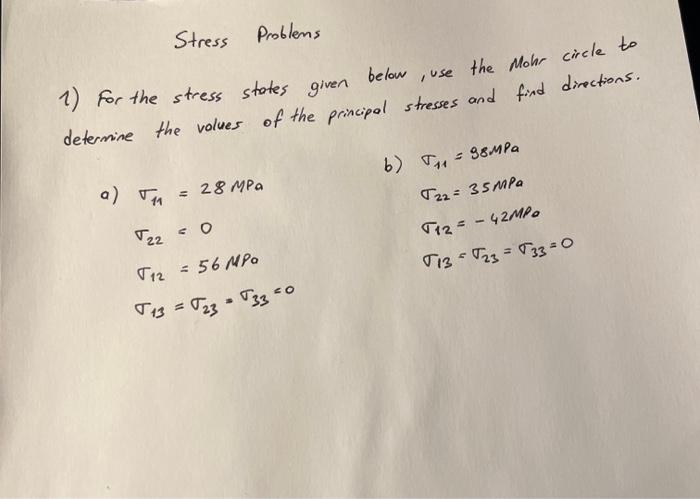 Stress Problems
1) For the stress states given below, use the Mohr circle to
determine the values of the principal stresses and find directions.
a) σ11 = 28 MPa
σ22 = 0
σ12 = 56 MPa
σ13 = σ23 = σ33 = 0
b) σ11 = 98MPa
σ22 = 35MPa
σ12 = -42MPa
σ13 = σ23 = σ33 = 0